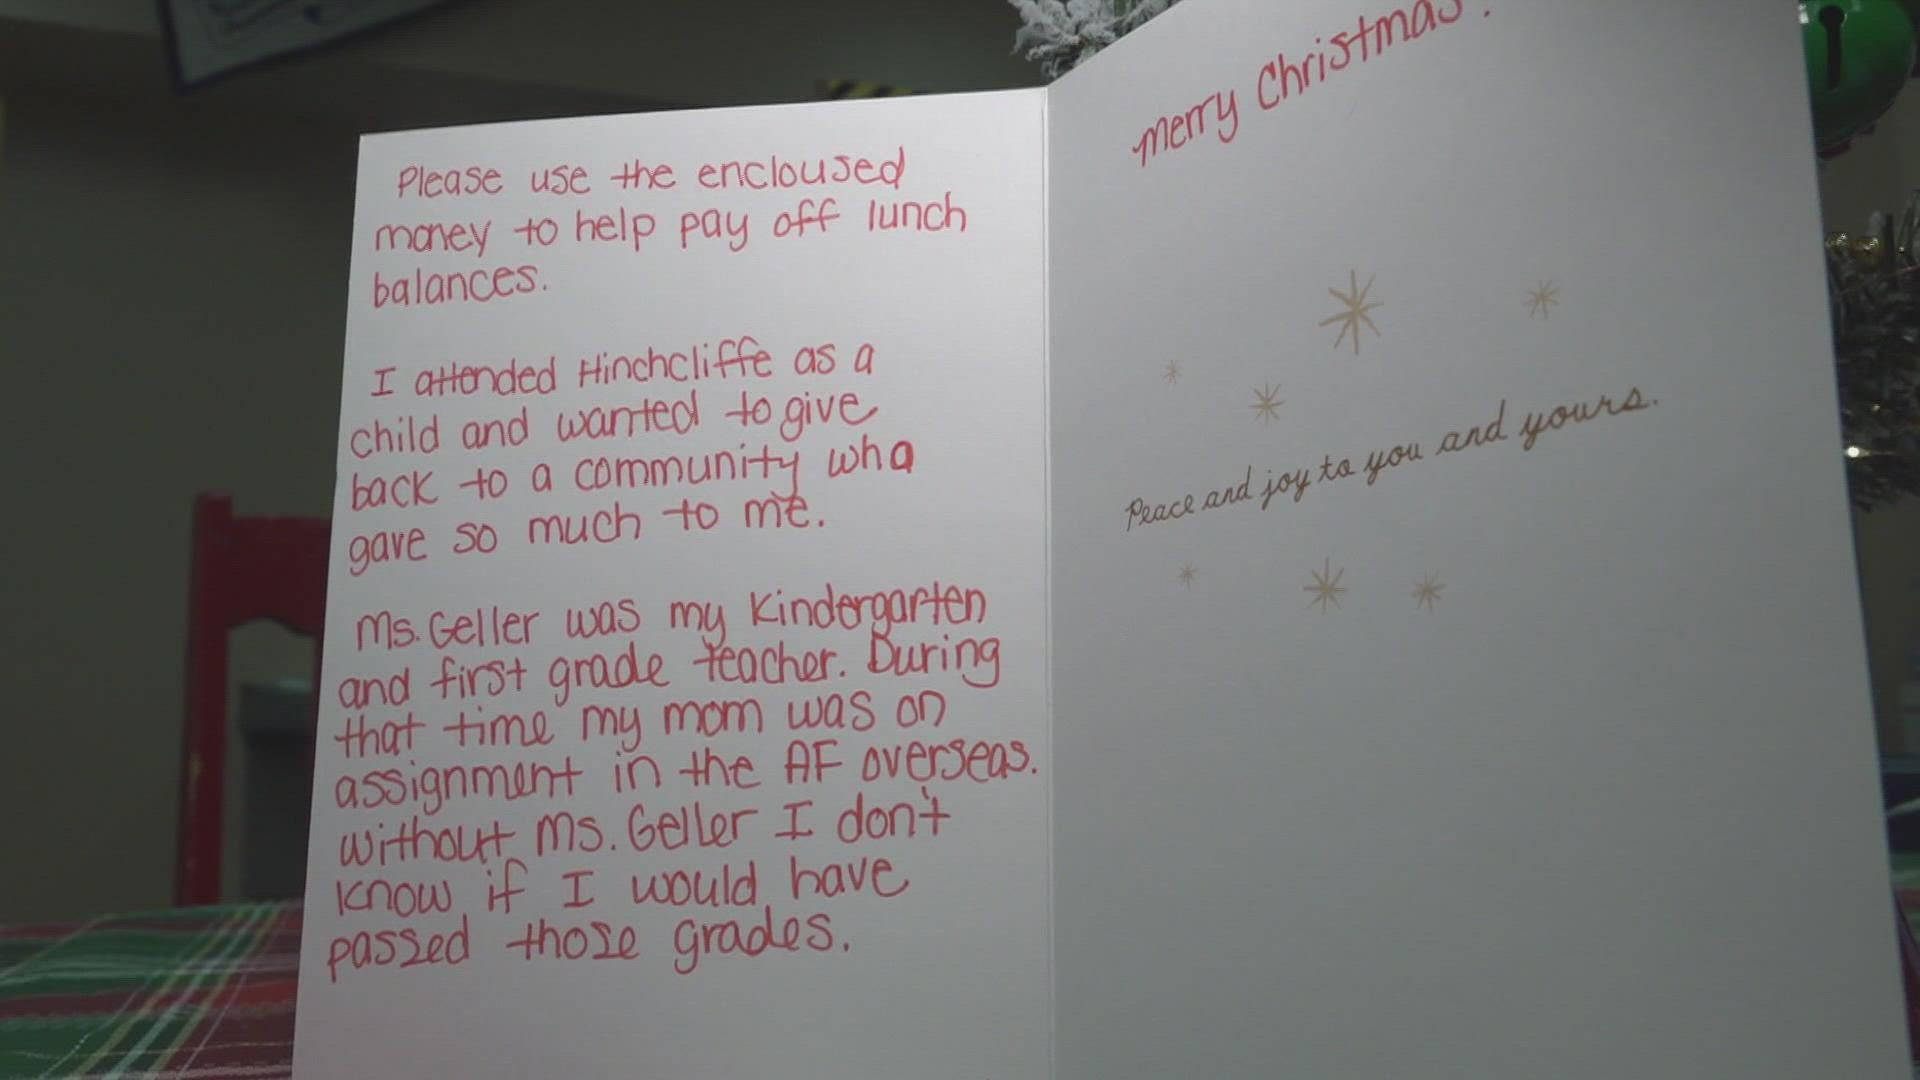 Please use the encloused
money to help pay off lunch
balances.
I attended Hinchcliffe as a
child and wanted to give
back to a community who
gave so much to me.
Ms. Geller was my Kindergarten
and first grade teacher. During
that time my mom was on
assignment in the AF overseas.
without Ms. Geller I don't
know if I would have
passed those grades.
Merry Christmas!
Peace and joy to you and yours.